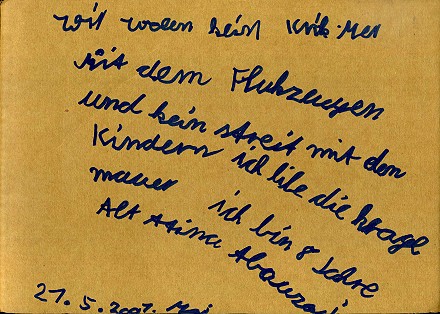 wir wolen kein Krik
mit dem Flukzeugen
und kein streit mit den
Kindern ich libe die
mauer ich bin 8 Jahre
Alt Atina
21.5.2001.